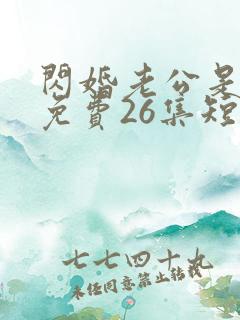 閃婚老公是
免費26集短
七七四十九
未经同意禁止转载